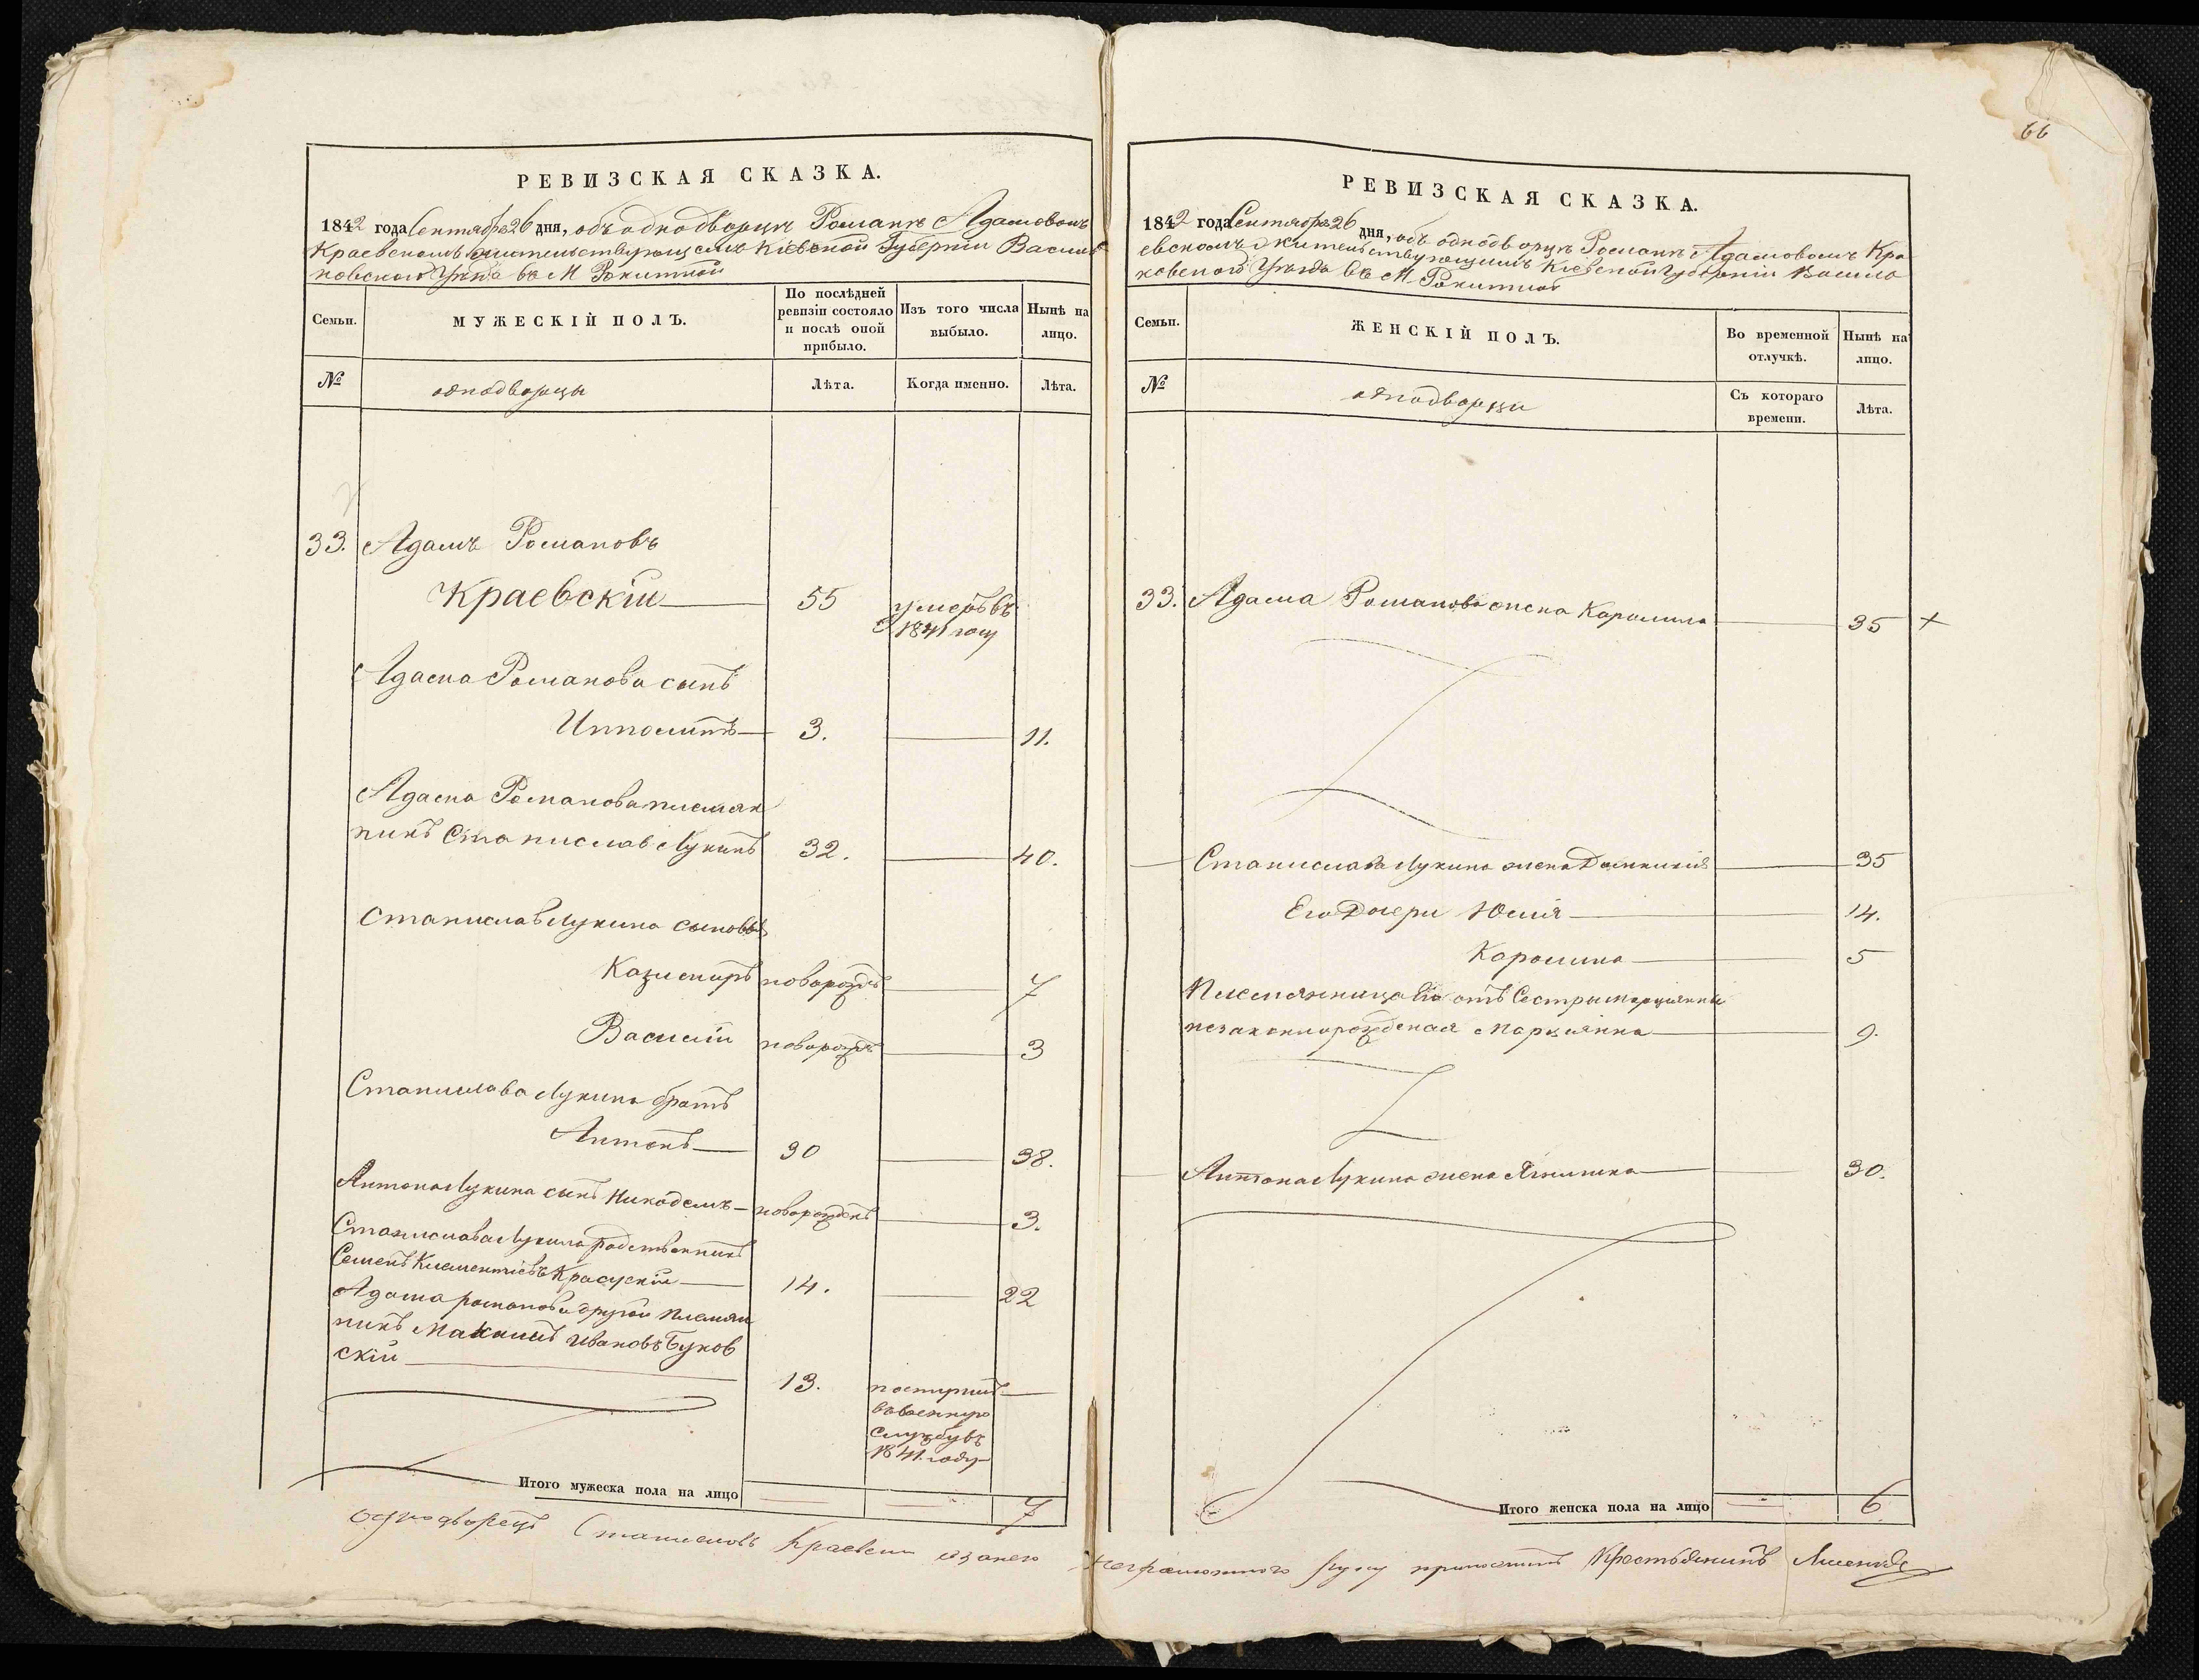 РЕВИЗСКАЯ СКАЗКА.
1842 года Сентября 26 дня, объ однодворцѣ Романѣ Адамовомъ
Краевскомъ жительствующемъ Кіевской Губерніи Васил
ковского Уѣзда въ М Рокитной
Семьи.
МУЖЕСКІЙ ПОЛЪ.
По послѣдней
ревизіи состояло
и послѣ оной
прибыло.
Изъ того числа
выбыло.
Нынѣ на
лицо.
№
однодворцы
Лѣта.
Когда именно.
Лѣта.
33. Адамъ Романовъ
Краевскій 55 умеръ въ
1841 году
Адама Романова сынъ
Ипполитъ 3. 11.
Адама Романова племян
никъ Станислав Лукинъ 32. 40.
Станислав Лукина сыновья
Казимиръ новорожд 7
Василій новорожд 3
Станислава Лукина братъ
Антонъ 30 38.
Антона Лукина сынъ Никодемъ новорожденъ 3.
Станислава Лукина родственникъ
Семенъ Клементіевъ Красускій 14. 22
Адама романова другой племян
никъ Ивановъ Буков
скій 13. поступилъ
въ военную
службу въ
1841. году
Итого мужеска пола на лицо 7
66
РЕВИЗСКАЯ СКАЗКА.
1842 года Сентября 26 дня, объ однодворцѣ Романѣ Адамовомъ Кра
евскомъ жительствующимъ Кіевской Губерніи Васил
ковского Уѣзда въ М Рокитной
Семьи.
ЖЕНСКІЙ ПОЛЪ.
Во временной
отлучкѣ.
Нынѣ на
лицо.
№
однодворцы
Съ котораго
времени.
Лѣта.
33. Адама Романова жена Каролина 35 +
Станислава Лукина жена 35
Его Дочери Юлія 14.
Каролина 5
Племянница Его отъ Сестры Марціянны
незаконнорожденая Марціянна 9.
Антона Лукина жена 30.
Итого женска пола на лицо 6
однодворецъ Станиславъ Краевски а занего неграмотного руку приложилъ Крестьянинъ